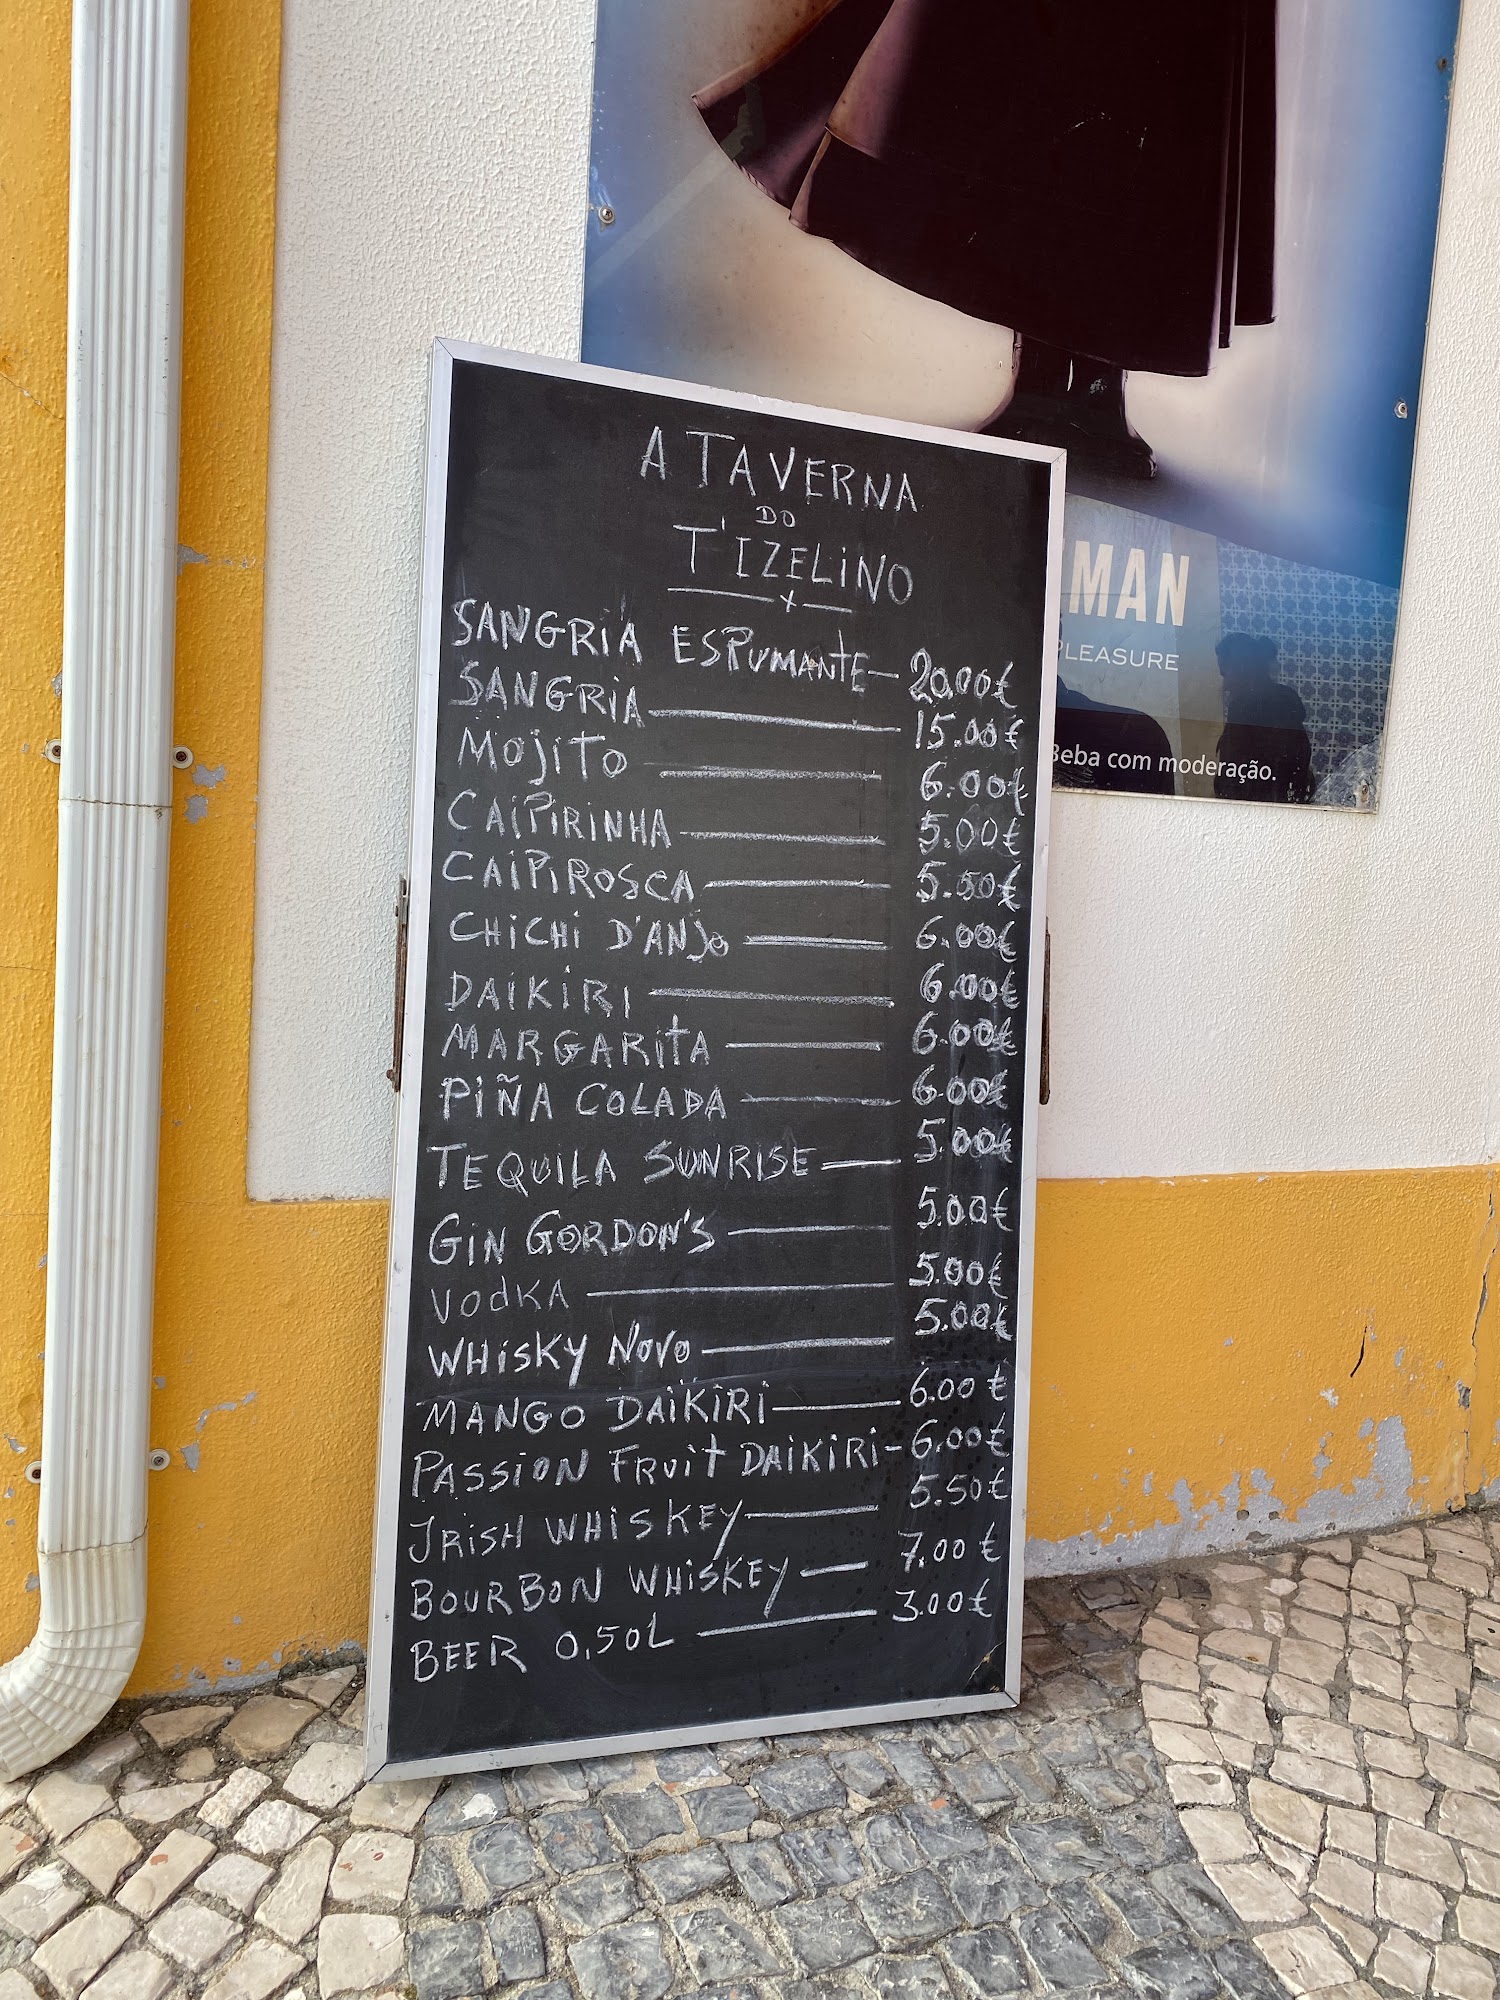 A TAVERNA
DO
T'IZELINO
SANGRIA ESPUMANTE 20.00€
SANGRIA 15.00€
MOJITO 6.00€
CAIPIRINHA 5.00€
CAIPIROSCA 5.50€
CHICHI D'ANJO 6.00€
DAIKIRI 6.00€
MARGARITA 6.00€
PIÑA COLADA 6.00€
TEQUILA SUNRISE 5.00€
GIN GORDON'S 5.00€
VODKA 5.00€
WHISKY NOVO 5.00€
MANGO DAIKIRI 6.00€
PASSION FRUIT DAIKIRI 6.00€
IRISH WHISKEY 5.50€
BOURBON WHISKEY 7.00€
BEER 0,50L 3.00€
MAN
PLEASURE
Beba com moderação.